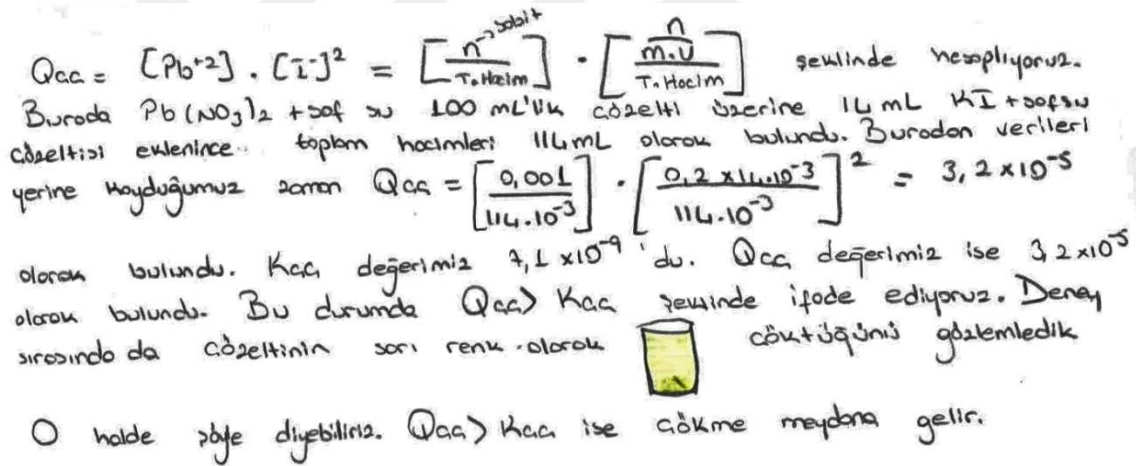 Qçç = [Pb+2] . [I-]² = [n→sabit / T.Hacim] . [n / m.v / T.Hacim] şeklinde hesaplıyoruz.
Burada Pb(NO3)2 + saf su 100 mL'lik çözelti üzerine 14 mL KI + saf su
çözeltisi eklenince toplam hacimleri 114 mL olarak bulundu. Buradan verileri
yerine koyduğumuz zaman Qçç = [0,001 / 114.10-3] . [0,2 x 14.10-3 / 114.10-3]² = 3,2x10-5
olarak bulundu. Kçç değerimiz 7,1 x10-9 'du. Qçç değerimiz ise 3,2x10-5
olarak bulundu. Bu durumda Qçç > Kçç şeklinde ifade ediyoruz. Deney
sırasında da çözeltinin sarı renk olarak çöktüğünü gözlemledik
O halde şöyle diyebiliriz. Qçç > Kçç ise çökme meydana gelir.